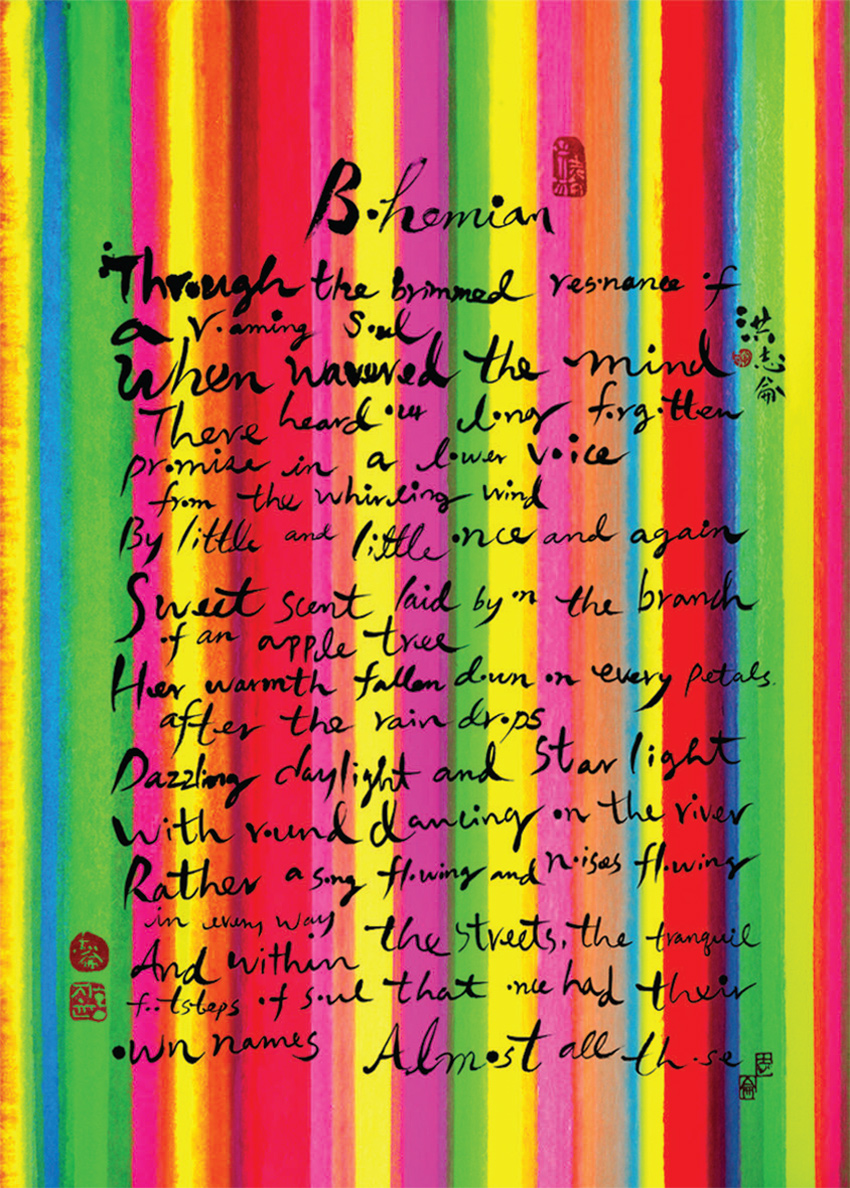 Bohemian
Through the brimmed resonance of
a roaming soul
When wavered the mind
There heard out along forgotten
promise in a lower voice
from the whirling wind
By little and little once and again
Sweet scent laid by on the branch
of an apple tree
Her warmth fallen down on every petals.
after the rain drops
Dazzling daylight and star light
With round dancing on the river
Rather a song flowing and noises flowing
in every way the streets, the tranquil
And within
footsteps of soul that once had their
own names Almost all those
洪志侖